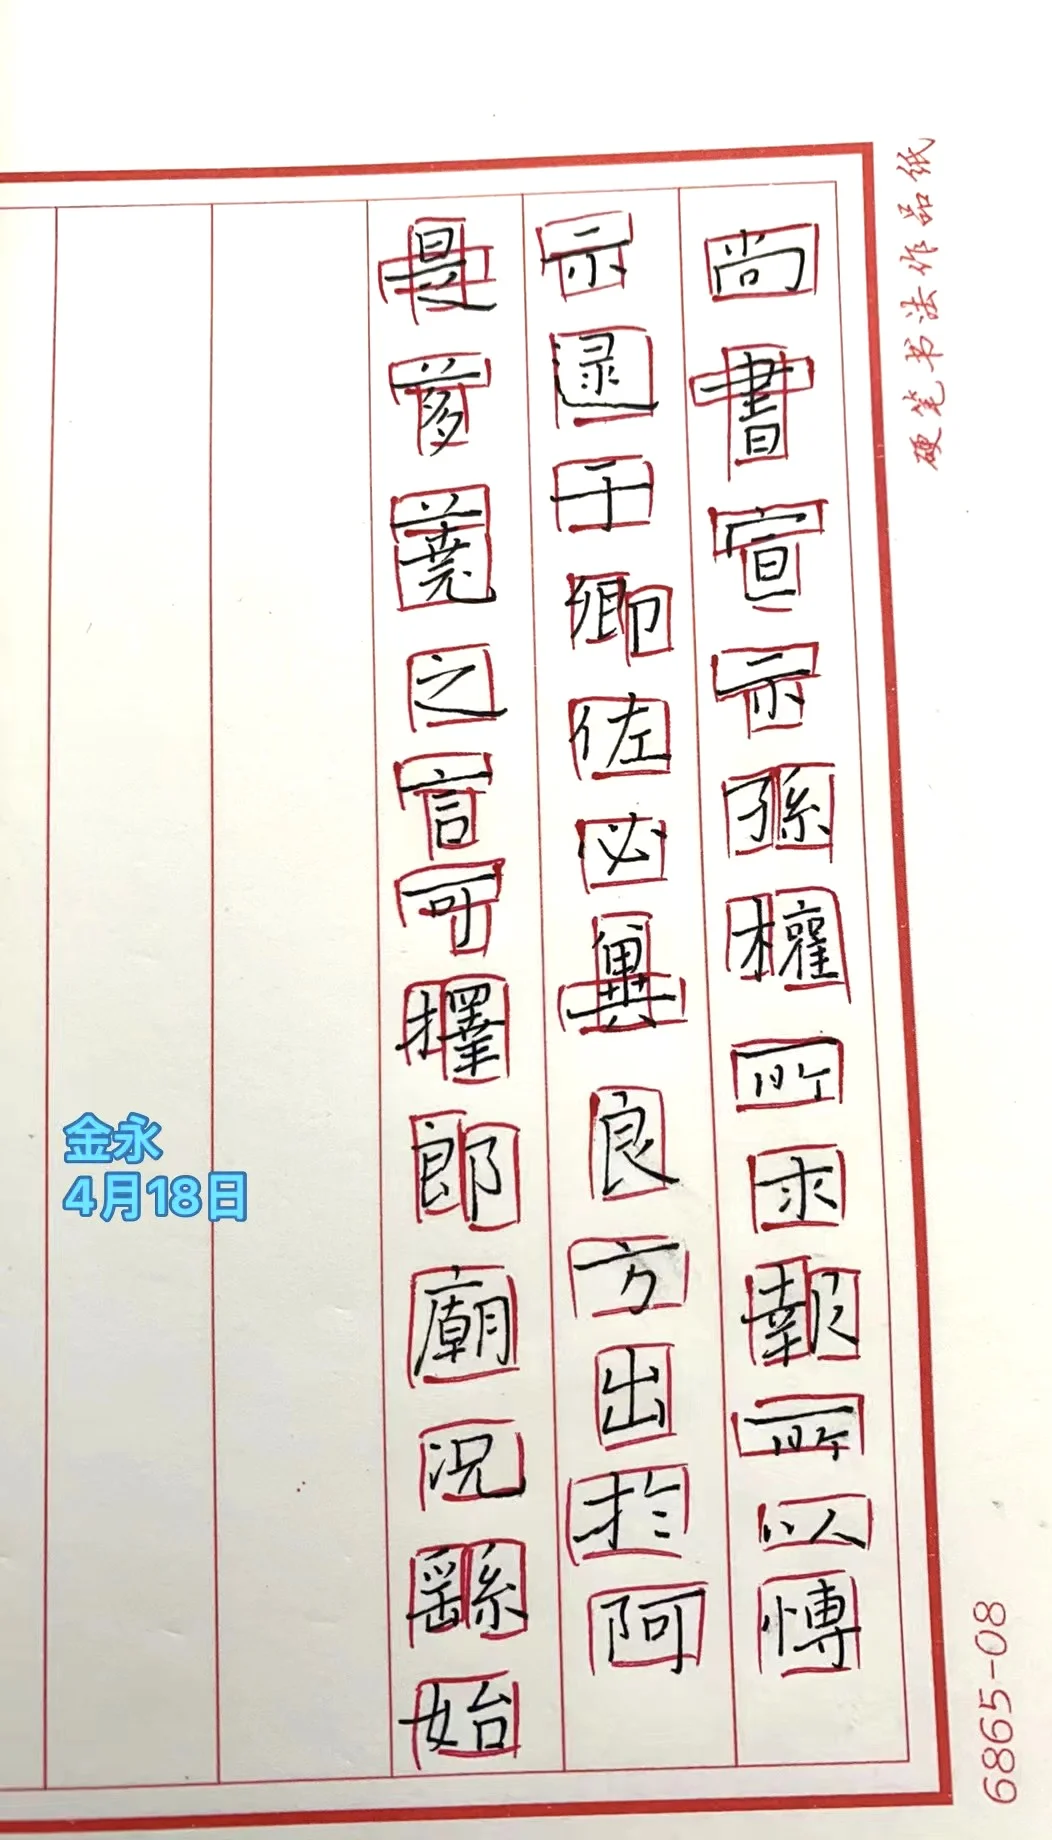 硬笔书法作品纸
尚書宣示孫權所求報所以愽
示逮于卿佐必冀良方出於阿
是芻蕘之言可擇郎廟況繇始
金永
4月18日
6865-08